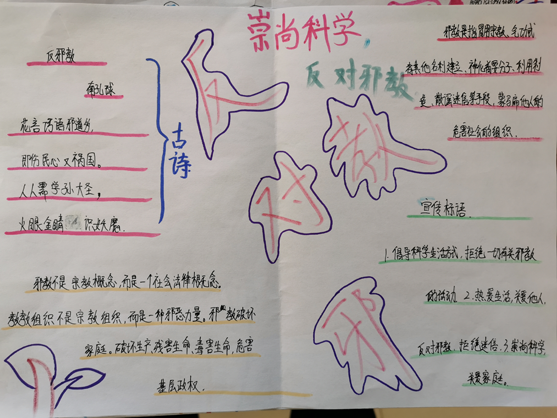 崇尚科学,
反对邪教
反邪教
危言诱语邪道多,
即伤民心又祸国。
人人需学孙大圣,
火眼金睛识妖魔。
古诗
反
对
邪
教
邪教是指冒用宗教、气功或
者其他名利建立、神化首要分子、利用制
造、散布迷信邪说等手段
危害社会的组织.
宣传标语
1.倡导科学生活方式,拒绝一切有关邪教
的活动 2.热爱生活,关爱他人,
反对邪教,拒绝迷信.3.崇尚科学,
关爱家庭。
邪教不是宗教概念,而是一个社会法律概念。
教组织不是宗教组织,而是一种邪恶力量。邪教破坏
家庭。破坏生产,残害生命,毒害生命,危害
基层政权.